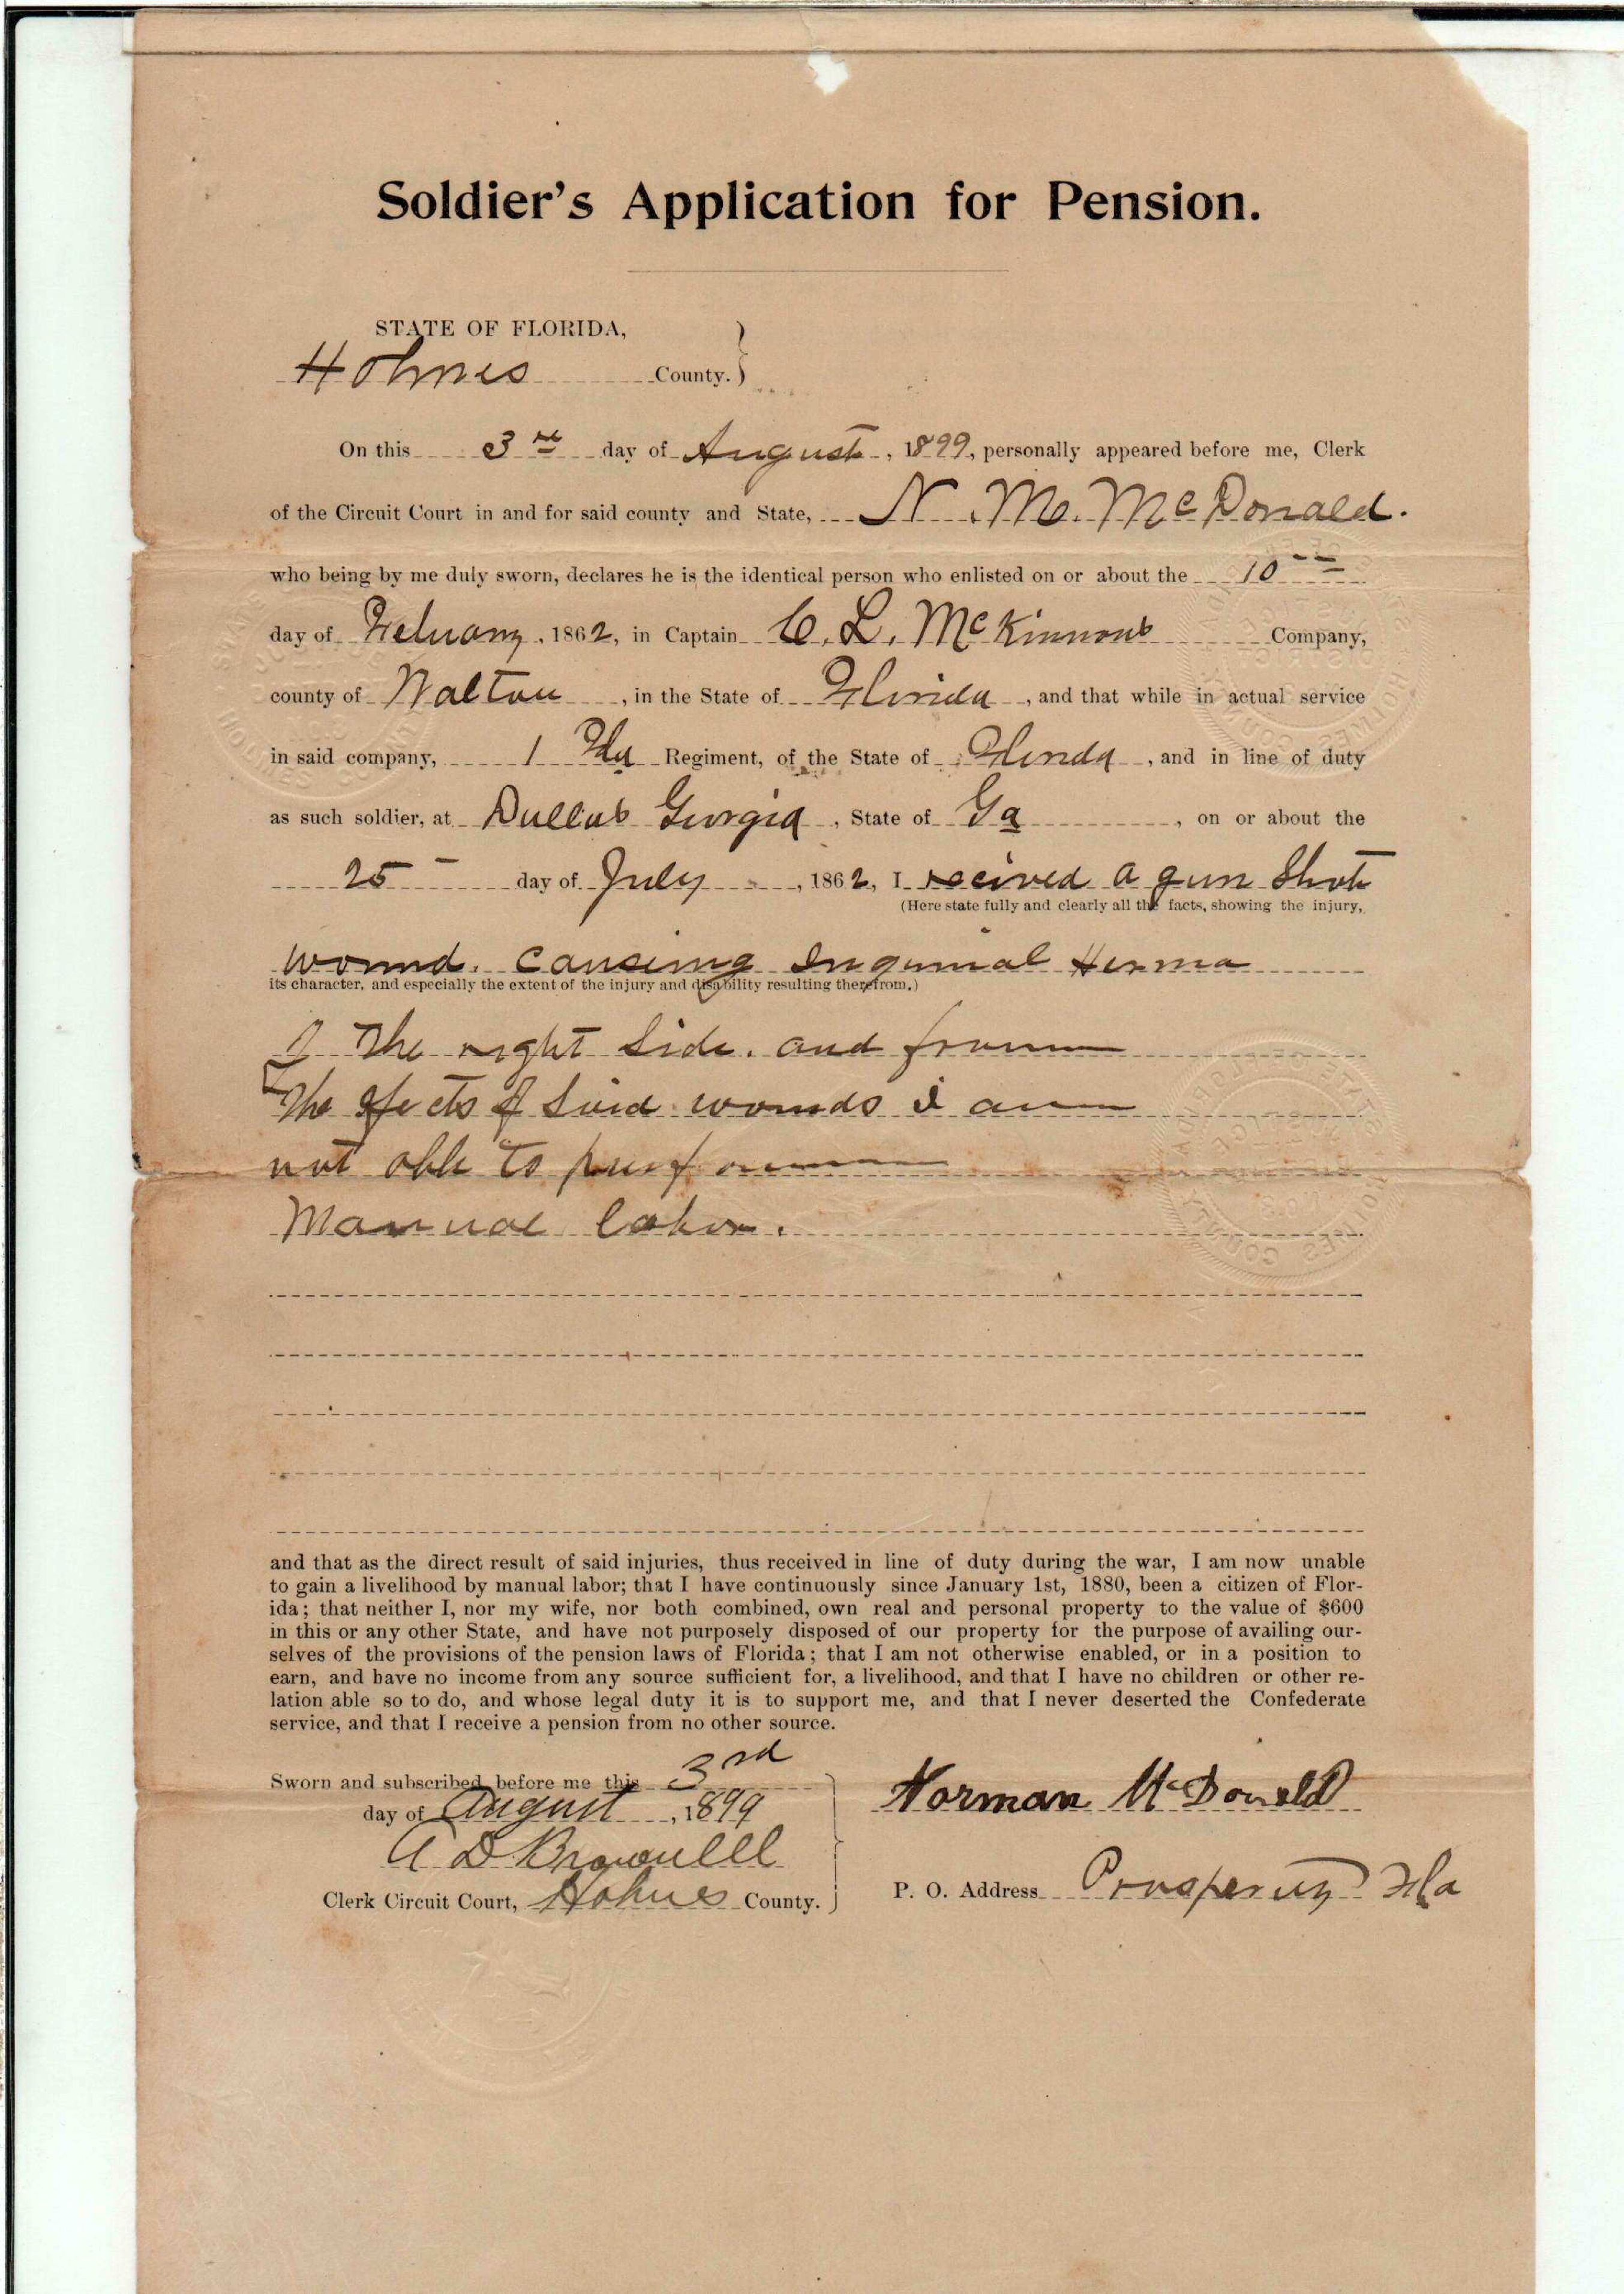 Soldier's Application for Pension.
STATE OF FLORIDA,
Holmes County.
On this 3rd day of August, 1899, personally appeared before me, Clerk
of the Circuit Court in and for said county and State, N. M. McDonald.
who being by me duly sworn, declares he is the identical person who enlisted on or about the 10
day of February, 1862, in Captain C. L. McKinnons Company,
county of Walton, in the State of Florida, and that while in actual service
in said company, 1 Fla Regiment, of the State of Florida, and in line of duty
as such soldier, at Dallas Georgia, State of Ga, on or about the
25 day of July, 1862, I recived a gun Shot
(Here state fully and clearly all the facts, showing the injury,
wound. causeing Inguinal Hernia
its character, and especially the extent of the injury and disability resulting therefrom.)
of The right Side. and from
The effects of Said wounds I am
not able to perform
Manual labor.
and that as the direct result of said injuries, thus received in line of duty during the war, I am now unable
to gain a livelihood by manual labor; that I have continuously since January 1st, 1880, been a citizen of Flor-
ida; that neither I, nor my wife, nor both combined, own real and personal property to the value of $600
in this or any other State, and have not purposely disposed of our property for the purpose of availing our-
selves of the provisions of the pension laws of Florida; that I am not otherwise enabled, or in a position to
earn, and have no income from any source sufficient for, a livelihood, and that I have no children or other re-
lation able so to do, and whose legal duty it is to support me, and that I never deserted the Confederate
service, and that I receive a pension from no other source.
Sworn and subscribed before me this 3rd
day of August, 1899
Norman McDonald
A D Brownell
Clerk Circuit Court, Holmes County.
P. O. Address Prosperity Fla